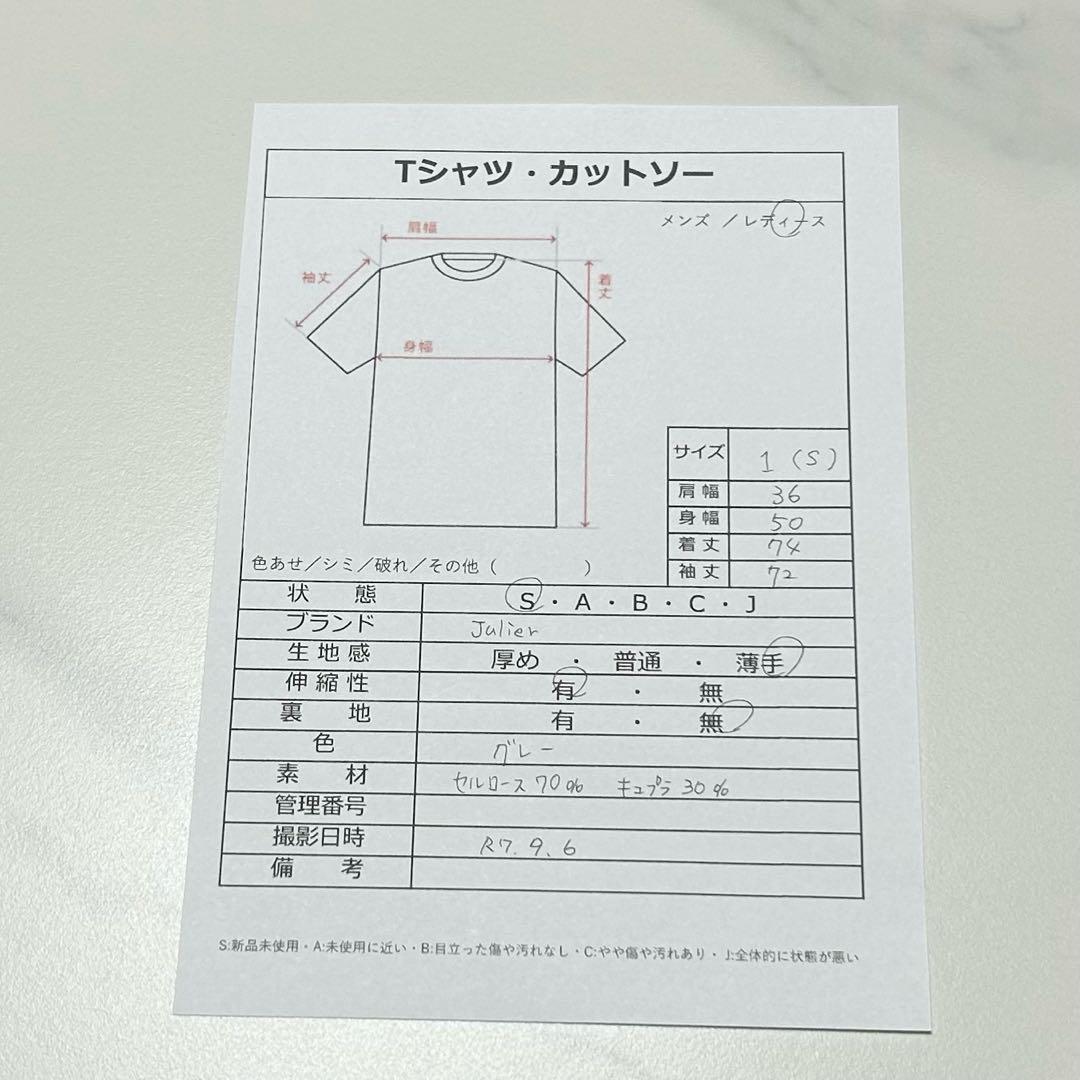 Tシャツ・カットソー
メンズ ／レディース
肩幅
袖丈
着丈
身幅
サイズ 1 (S)
肩 幅 36
身 幅 50
着 丈 74
袖 丈 72
色あせ／シミ／破れ／その他（ ）
状 態 S・A・B・C・J
ブランド Julier
生 地 感 厚め ・ 普通 ・ 薄手
伸 縮 性 有 ・ 無
裏 地 有 ・ 無
色 グレー
素 材 セルロース 70% キュプラ 30%
管理番号
撮影日時 R7. 9. 6
備 考
S:新品未使用・A:未使用に近い・B:目立った傷や汚れなし・C:やや傷や汚れあり・J:全体的に状態が悪い